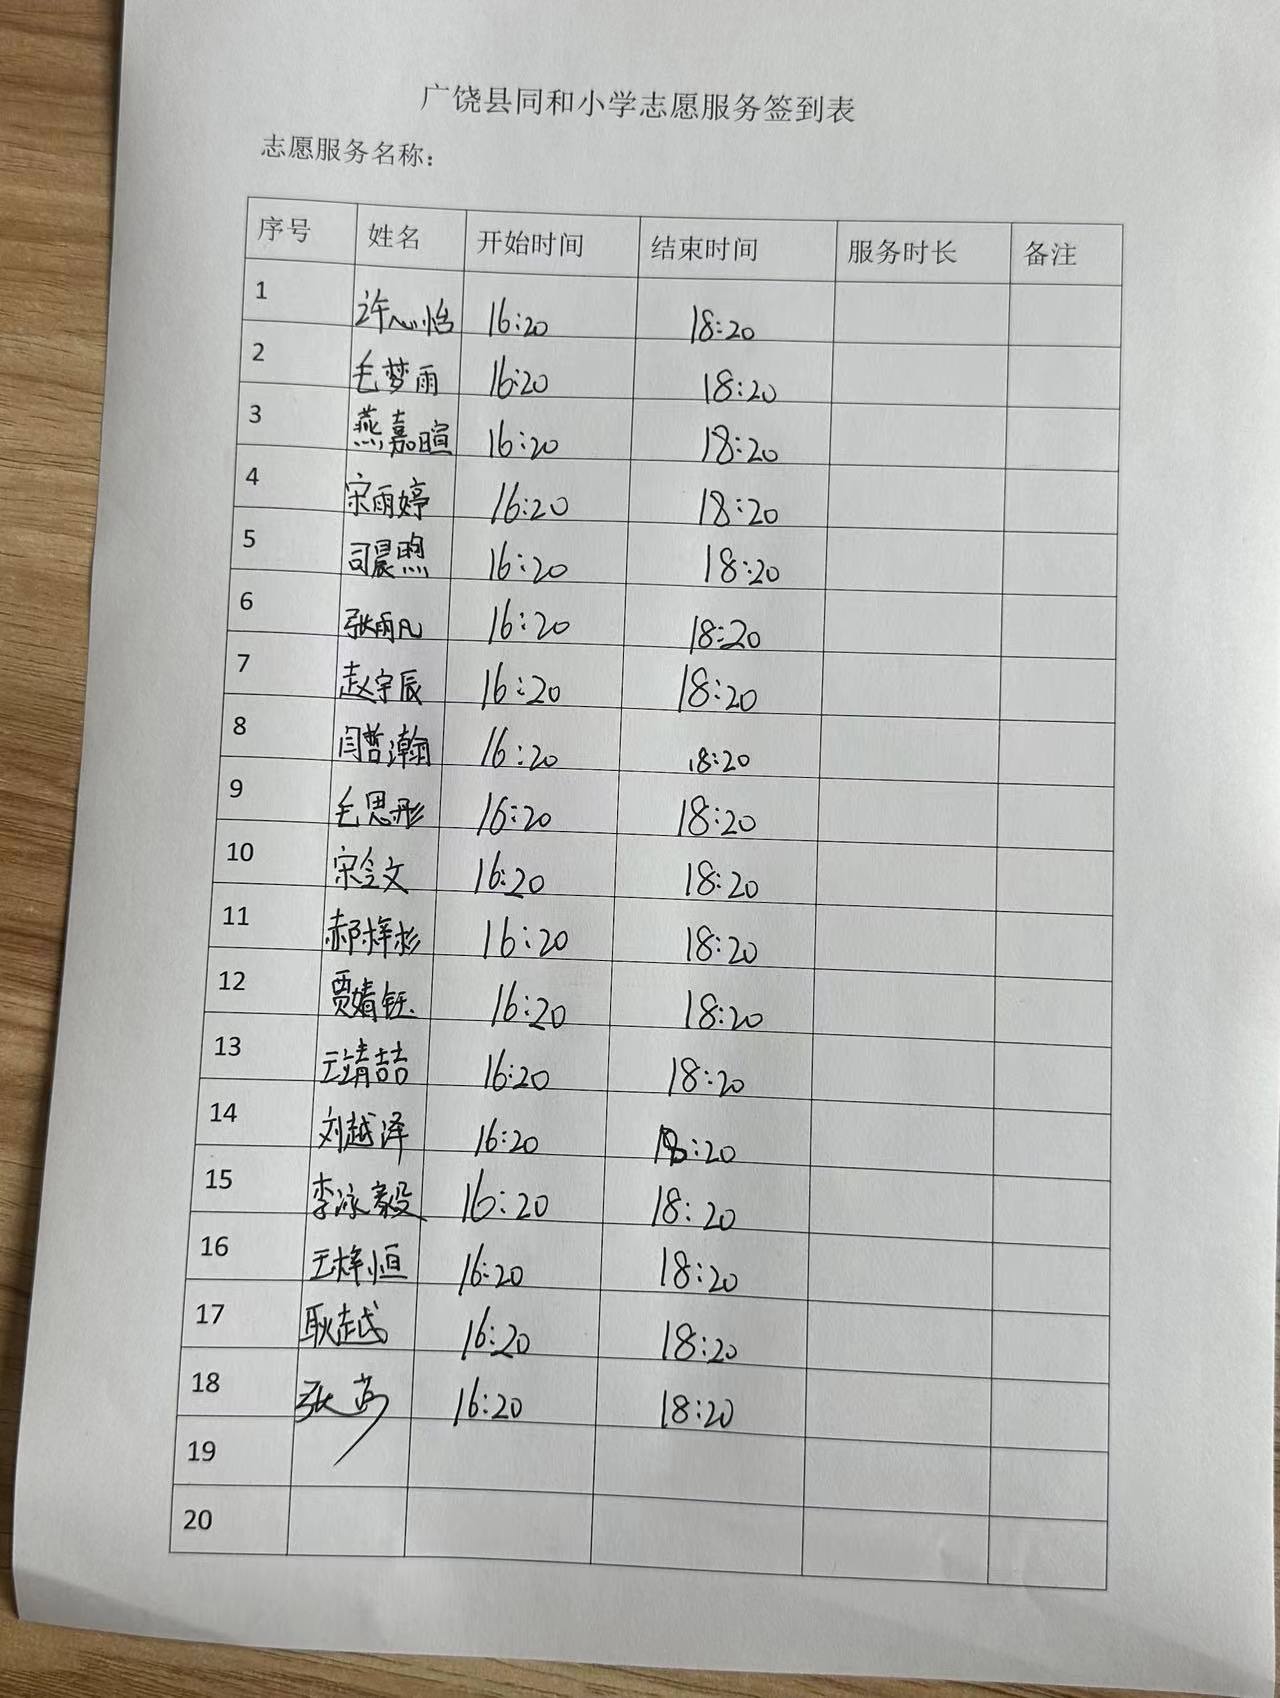 广饶县同和小学志愿服务签到表
志愿服务名称：
序号 姓名 开始时间 结束时间 服务时长 备注
1 许心怡 16:20 18:20
2 毛梦雨 16:20 18:20
3 燕嘉暄 16:20 18:20
4 宋雨婷 16:20 18:20
5 司晨煦 16:20 18:20
6 张雨凡 16:20 18:20
7 赵宇辰 16:20 18:20
8 闫哲瀚 16:20 18:20
9 毛思彤 16:20 18:20
10 宋令文 16:20 18:20
11 郝梓杉 16:20 18:20
12 贾婧钰 16:20 18:20
13 王靖喆 16:20 18:20
14 刘越泽 16:20 18:20
15 李泳毅 16:20 18:20
16 王梓恒 16:20 18:20
17 耿越 16:20 18:20
18 张 16:20 18:20
19
20